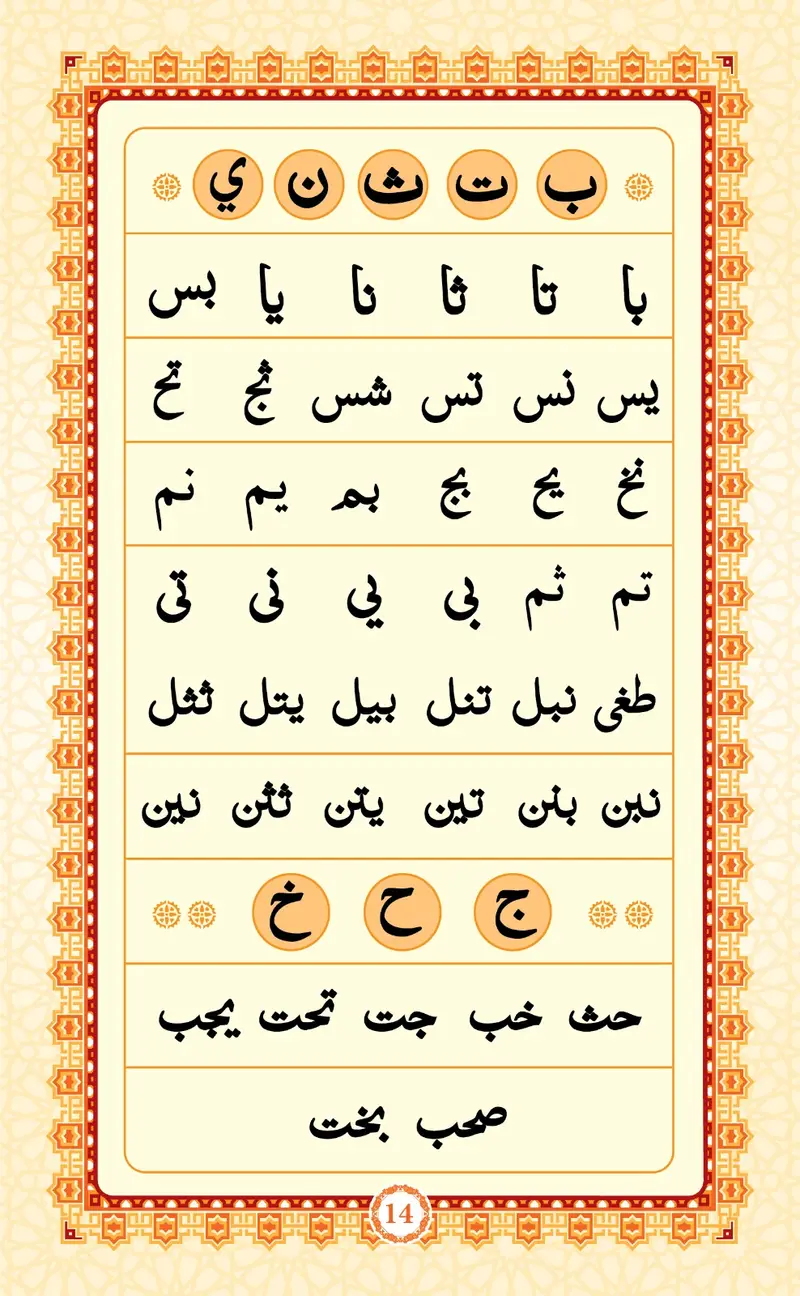 ب ت ث ن ي
با تا ثا نا يا بس
يس نس تس شس ثج تح
نخ يح بج بم يم نم
تم ثم بى يي نى تى
طغى نبل تنل بيل يتل ثثل
نبن بنن تين يتن ثثن نين
ج ح خ
حث خب جت تحت يجب
صحب بخت
14